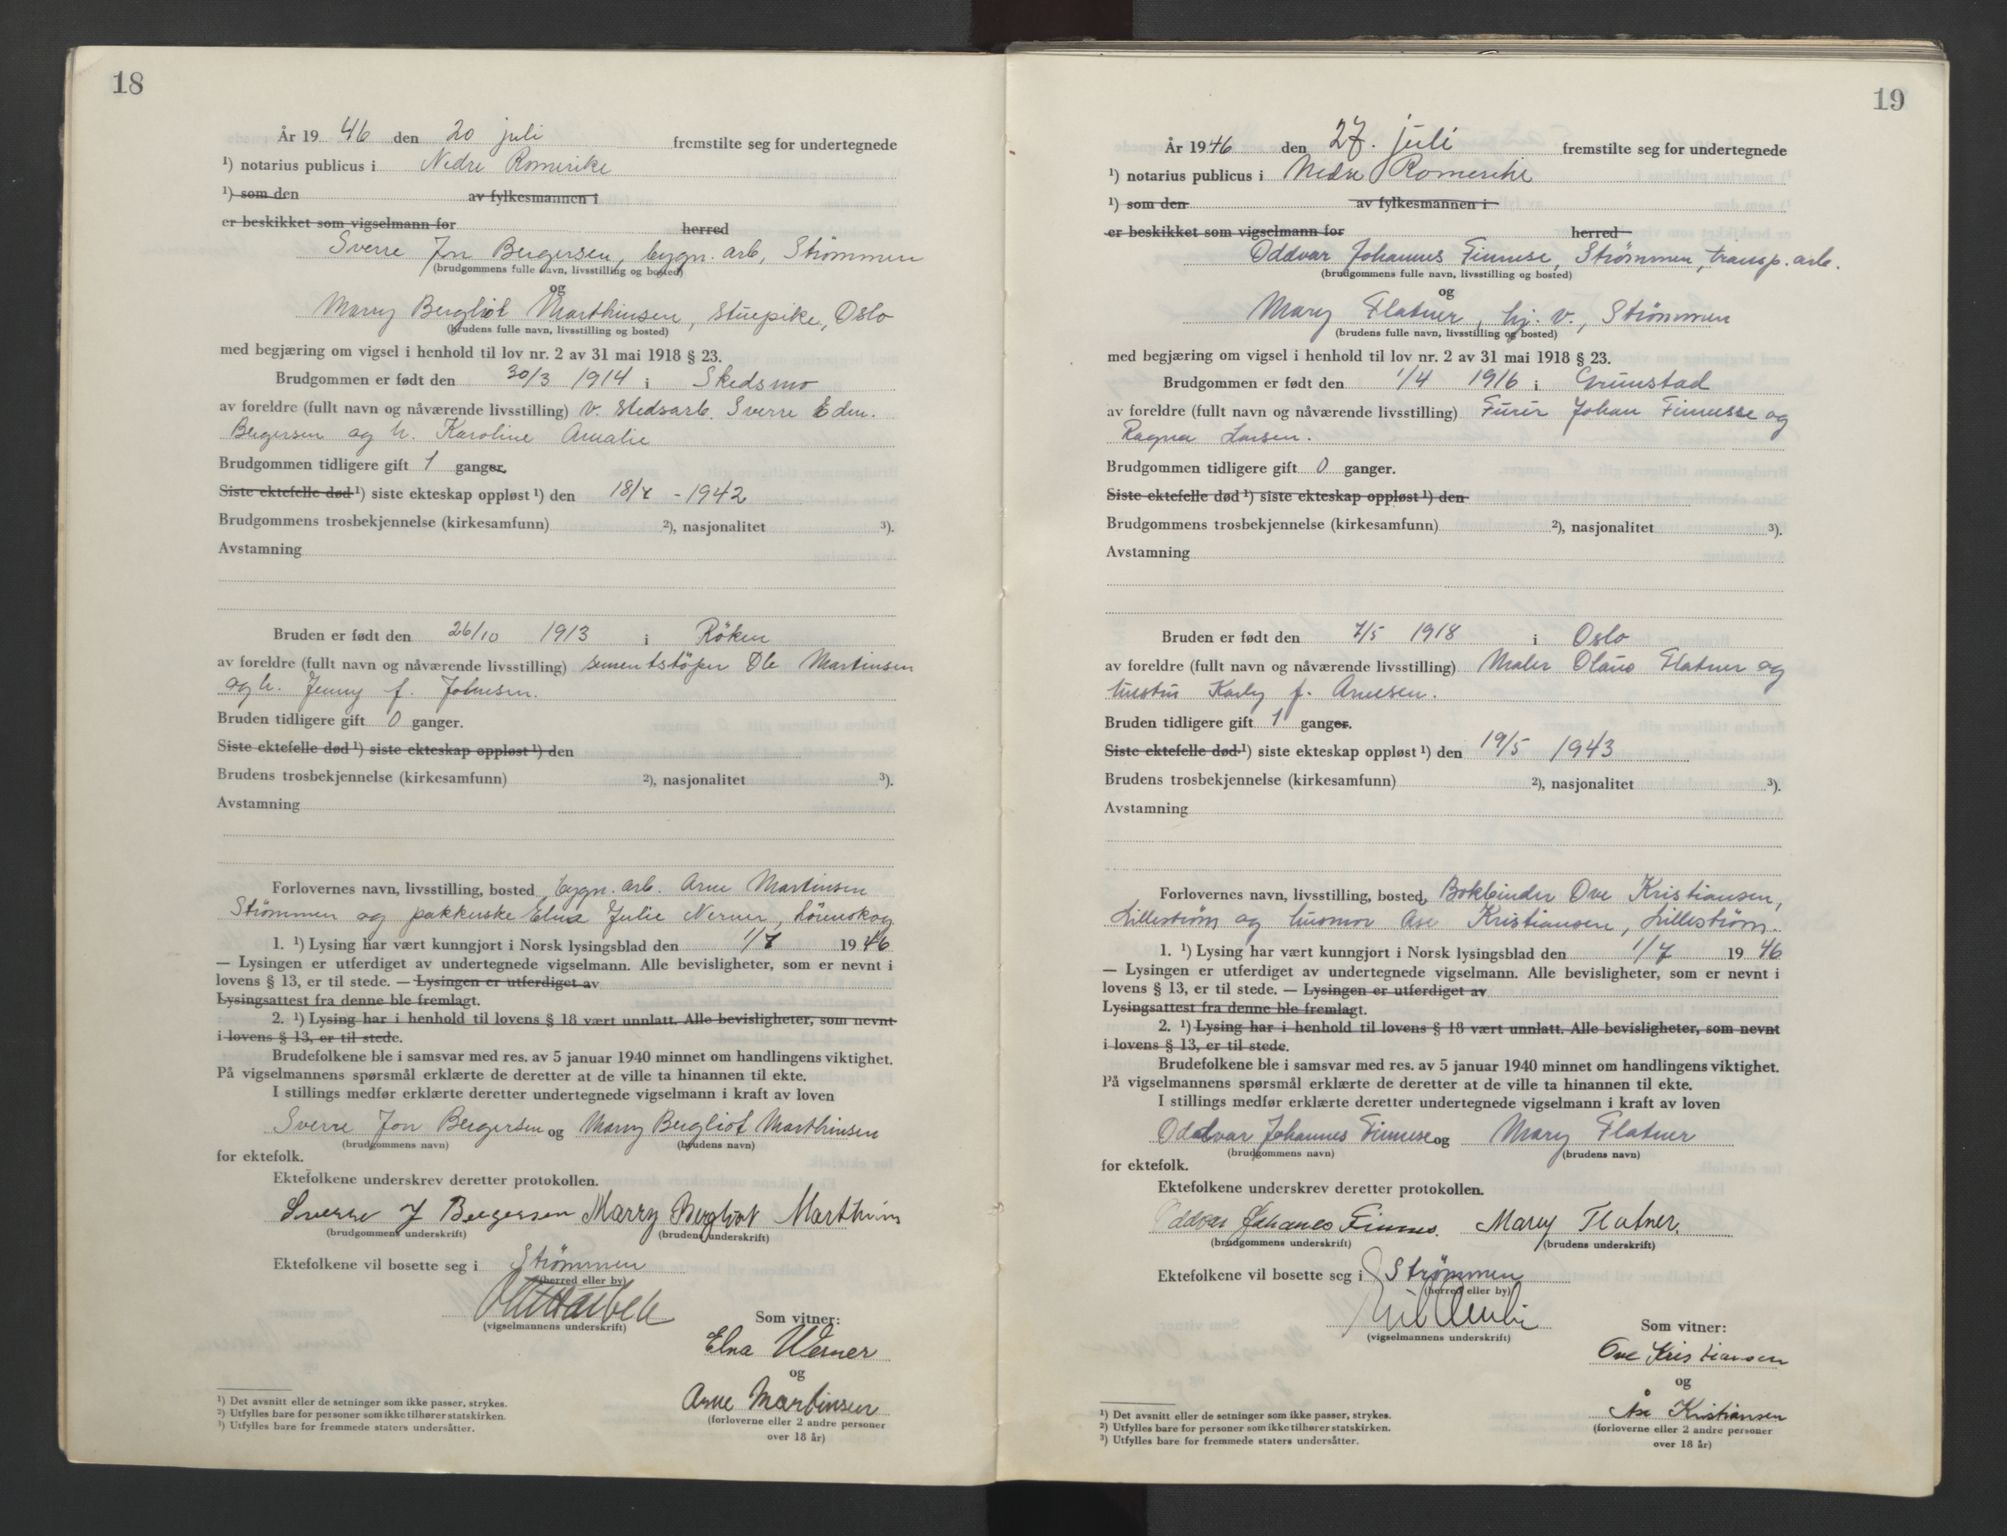 18
År 19 46 den 20 juli fremstilte seg for undertegnede
¹) notarius publicus i Nedre Romerike
¹) som den av fylkesmannen i
er beskikket som vigselmann for herred
Sverre Jon Bergersen, bygn. arb, Strømmen
(brudgommens fulle navn, livsstilling og bosted)
og
Marry Bergliot Marthinsen, stuepike, Oslo
(brudens fulle navn, livsstilling og bosted)
med begjæring om vigsel i henhold til lov nr. 2 av 31 mai 1918 § 23.
Brudgommen er født den 30/3 1914 i Skedsmo
av foreldre (fullt navn og nåværende livsstilling) v. stedsarb. Sverre Edm.
Bergersen og h. Karoline Amalie
Brudgommen tidligere gift 1 ganger.
Siste ektefelle død ¹) siste ekteskap oppløst ¹) den 18/4 - 1942
Brudgommens trosbekjennelse (kirkesamfunn) ²), nasjonalitet ³).
Avstamning
Bruden er født den 26/10 1913 i Röken
av foreldre (fullt navn og nåværende livsstilling) sementstöper Ole Martinsen
og h. Jenny f. Johnsen.
Bruden tidligere gift 0 ganger.
Siste ektefelle død ¹) siste ekteskap oppløst ¹) den
Brudens trosbekjennelse (kirkesamfunn) ²), nasjonalitet ³).
Avstamning
Forlovernes navn, livsstilling, bosted bygn. arb. Arne Martinsen
Strømmen og pakkerske Elna Julie Nerner, Lörenskog
1. ¹) Lysing har vært kunngjort i Norsk lysingsblad den 1/7 19 46
— Lysingen er utferdiget av undertegnede vigselmann. Alle bevisligheter, som er nevnt i
lovens § 13, er til stede. — Lysingen er utferdiget av
Lysingsattest fra denne ble fremlagt.
2. ¹) Lysing har i henhold til lovens § 18 vært unnlatt. Alle bevisligheter, som nevnt
i lovens § 13, er til stede.
Brudefolkene ble i samsvar med res. av 5 januar 1940 minnet om handlingens viktighet.
På vigselmannens spørsmål erklærte de deretter at de ville ta hinannen til ekte.
I stillings medfør erklærte deretter undertegnede vigselmann i kraft av loven
Sverre Jon Bergersen og Marry Bergliot Marthinsen
(brudgommens navn) (brudens navn)
for ektefolk.
Ektefolkene underskrev deretter protokollen.
Sverre J Bergersen Marry Bergliot Marthins
(brudgommens underskrift) (brudens underskrift)
Ektefolkene vil bosette seg i Strømmen
(herred eller by)
(vigselmannens underskrift)
Som vitner:
Elna Werner
og
Arne Martinsen
(forloverne eller 2 andre personer
over 18 år)
¹) Det avsnitt eller de setninger som ikke passer, strykes.
²) Utfylles bare for personer som ikke tilhører statskirken.
³) Utfylles bare for fremmede staters undersåtter.
19
År 19 46 den 27. juli fremstilte seg for undertegnede
¹) notarius publicus i Nedre Romerike
¹) som den av fylkesmannen i
er beskikket som vigselmann for herred
Oddvar Johannes Finnese, Strømmen, transp. arb.
(brudgommens fulle navn, livsstilling og bosted)
og
Mary Flatner, hj. v., Strømmen
(brudens fulle navn, livsstilling og bosted)
med begjæring om vigsel i henhold til lov nr. 2 av 31 mai 1918 § 23.
Brudgommen er født den 1/4 1916 i Grimstad
av foreldre (fullt navn og nåværende livsstilling) Furér Johan Finnesse og
Ragna Larsen.
Brudgommen tidligere gift 0 ganger.
Siste ektefelle død ¹) siste ekteskap oppløst ¹) den
Brudgommens trosbekjennelse (kirkesamfunn) ²), nasjonalitet ³).
Avstamning
Bruden er født den 7/5 1918 i Oslo
av foreldre (fullt navn og nåværende livsstilling) Maler Olaus Flatner og
hustru Karly f. Arnesen.
Bruden tidligere gift 1 ganger.
Siste ektefelle død ¹) siste ekteskap oppløst ¹) den 19/5 1943
Brudens trosbekjennelse (kirkesamfunn) ²), nasjonalitet ³).
Avstamning
Forlovernes navn, livsstilling, bosted Bokbinder Ove Kristiansen,
Lilleström og husmor Ase Kristiansen, Lilleström.
1. ¹) Lysing har vært kunngjort i Norsk lysingsblad den 1/7 19 46
— Lysingen er utferdiget av undertegnede vigselmann. Alle bevisligheter, som er nevnt i
lovens § 13, er til stede. — Lysingen er utferdiget av
Lysingsattest fra denne ble fremlagt.
2. ¹) Lysing har i henhold til lovens § 18 vært unnlatt. Alle bevisligheter, som nevnt
i lovens § 13, er til stede.
Brudefolkene ble i samsvar med res. av 5 januar 1940 minnet om handlingens viktighet.
På vigselmannens spørsmål erklærte de deretter at de ville ta hinannen til ekte.
I stillings medfør erklærte deretter undertegnede vigselmann i kraft av loven
Oddvar Johannes Finnese og Mary Flatner
(brudgommens navn) (brudens navn)
for ektefolk.
Ektefolkene underskrev deretter protokollen.
Oddvar Johanes Finnes. Mary Flatner.
(brudgommens underskrift) (brudens underskrift)
Ektefolkene vil bosette seg i Strömmen
(herred eller by)
(vigselmannens underskrift)
Som vitner:
Ove Kristiansen
og
Åse Kristiansen
(forloverne eller 2 andre personer
over 18 år)
¹) Det avsnitt eller de setninger som ikke passer, strykes.
²) Utfylles bare for personer som ikke tilhører statskirken.
³) Utfylles bare for fremmede staters undersåtter.